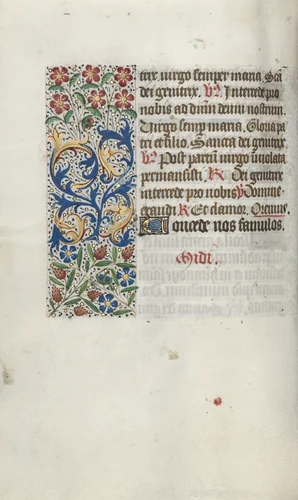 trix. virgo semper maria. Scā
dei genitrix. ℣. Intercede pro
nobis ad dnm̄ deum nostrum.
Virgo semp maria. Gloria pa
tri et filio. Sancta dei genitrix.
℣. Post partū virgo inviolata
permansisti. ℟. Dei genitrix
intercede pro nobis. ℣. Domine
exaudi. ℟. Et clamor. Oremus.
Concede nos famulos.
Midi.